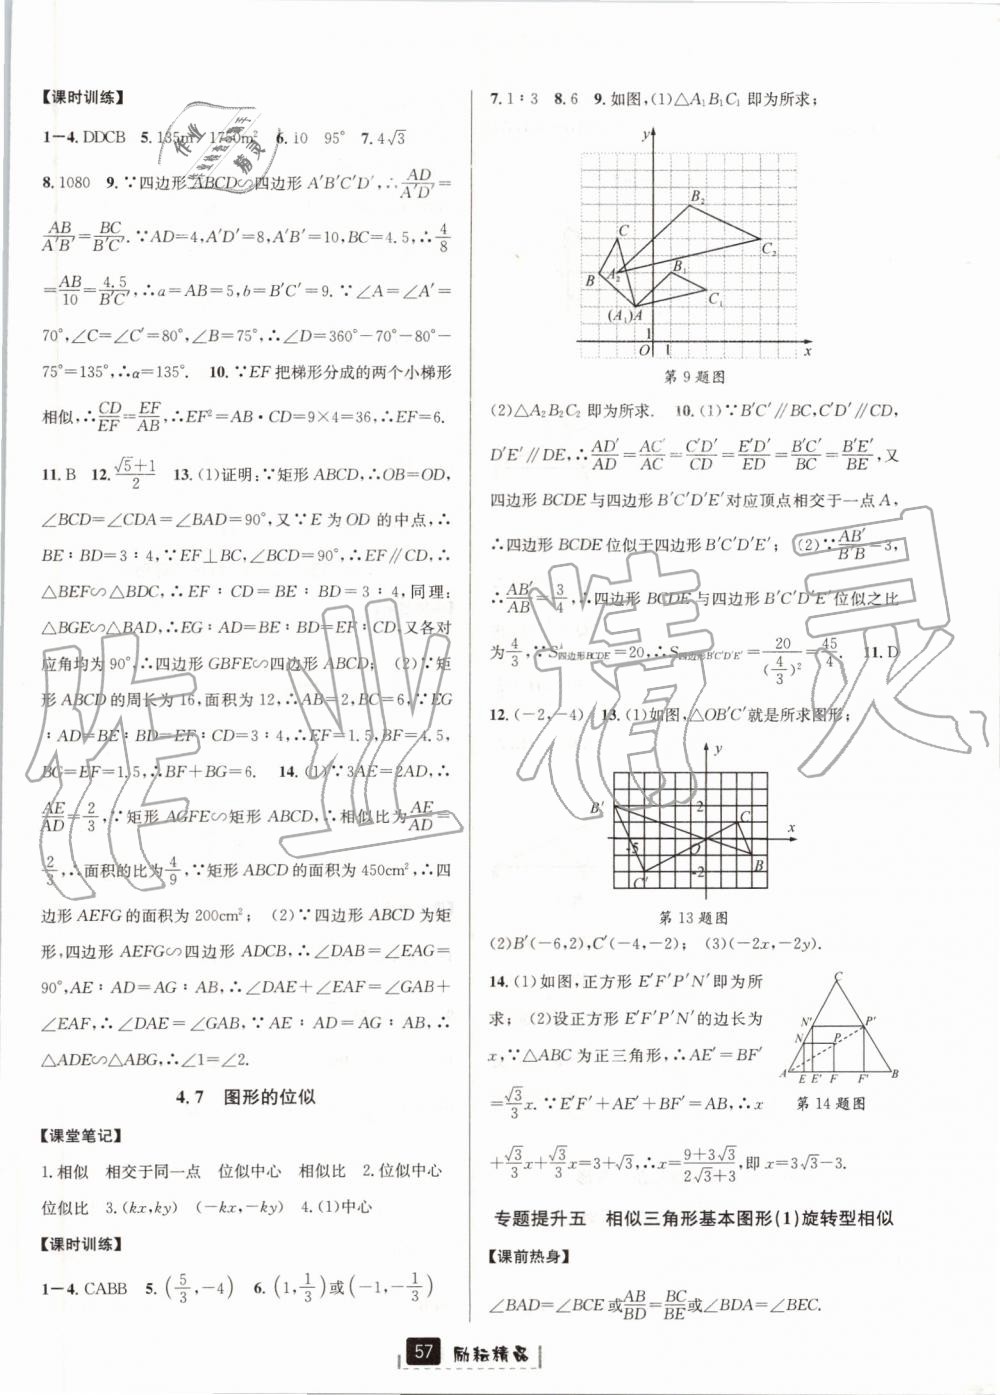 【课时训练】
1—4. DDCB 5. 135m 1750m² 6. 10 95° 7. 4√3
8. 1080 9. ∵四边形ABCD∽四边形A′B′C′D′,∴AD/A′D′=
AB/A′B′=BC/B′C′. ∵AD=4,A′D′=8,A′B′=10,BC=4.5,∴4/8
=AB/10=4.5/B′C′,∴a=AB=5,b=B′C′=9. ∵∠A=∠A′=
70°,∠C=∠C′=80°,∠B=75°,∴∠D=360°-70°-80°-
75°=135°,∴α=135°. 10. ∵EF把梯形分成的两个小梯形
相似,∴CD/EF=EF/AB,∴EF²=AB·CD=9×4=36,∴EF=6.
11. B 12. (√5+1)/2 13. (1)证明:∵矩形ABCD,∴OB=OD,
∠BCD=∠CDA=∠BAD=90°,又∵E为OD的中点,∴
BE∶BD=3∶4,∵EF⊥BC,∠BCD=90°,∴EF∥CD,∴
△BEF∽△BDC,∴EF∶CD=BE∶BD=3∶4,同理:
△BGE∽△BAD,∴EG∶AD=BE∶BD=EF∶CD,又各对
应角均为90°,∴四边形GBFE∽四边形ABCD; (2)∵矩
形ABCD的周长为16,面积为12,∴AB=2,BC=6,∵EG
∶AD=BE∶BD=EF∶CD=3∶4,∴EF=1.5,BF=4.5,
BG=EF=1.5,∴BF+BG=6. 14. (1)∵3AE=2AD,∴
AE/AD=2/3,∵矩形AGFE∽矩形ABCD,∴相似比为AE/AD=
2/3,∴面积的比为4/9,∵矩形ABCD的面积为450cm²,∴四
边形AEFG的面积为200cm²; (2)∵四边形ABCD为矩
形,四边形AEFG∽四边形ADCB,∴∠DAB=∠EAG=
90°,AE∶AD=AG∶AB,∴∠DAE+∠EAF=∠GAB+
∠EAF,∴∠DAE=∠GAB,∵AE∶AD=AG∶AB,∴
△ADE∽△ABG,∴∠1=∠2.
4.7 图形的位似
【课堂笔记】
1. 相似 相交于同一点 位似中心 相似比 2. 位似中心
位似比 3. (kx,ky) (-kx,-ky) 4. (1)中心
【课时训练】
1—4. CABB 5. (5/3,-4) 6. (1,1/3)或(-1,-1/3)
7. 1∶3 8. 6 9. 如图,(1)△A₁B₁C₁即为所求;
y
B₂
C
C₂
B
A₂
B₁
C₁
(A₁)A
1
O 1 x
第9题图
(2)△A₂B₂C₂即为所求. 10. (1)∵B′C′∥BC,C′D′∥CD,
D′E′∥DE,∴AD′/AD=AC′/AC=C′D′/CD=E′D′/ED=B′C′/BC=B′E′/BE,又
四边形BCDE与四边形B′C′D′E′对应顶点相交于一点A,
∴四边形BCDE位似于四边形B′C′D′E′; (2)∵AB′/B′B=3,
∴AB′/AB=3/4,∴四边形BCDE与四边形B′C′D′E′位似之比
为4/3,∵S四边形BCDE=20,∴S四边形B′C′D′E′=20/(4/3)²=45/4. 11. D
12. (-2,-4) 13. (1)如图,△OB′C′就是所求图形;
y
B′ 2 C
x
-5 O B
C′ -2
第13题图
(2)B′(-6,2),C′(-4,-2); (3)(-2x,-2y).
14. (1)如图,正方形E′F′P′N′即为所
求; (2)设正方形E′F′P′N′的边长为
x,∵△ABC为正三角形,∴AE′=BF′
=√3/3x. ∵E′F′+AE′+BF′=AB,∴x
+√3/3x+√3/3x=3+√3,∴x=(9+3√3)/(2√3+3),即x=3√3-3.
C
N′ P′
N P
A E E′ F F′ B
第14题图
专题提升五 相似三角形基本图形(1)旋转型相似
【课前热身】
∠BAD=∠BCE或AB/BD=BC/BE或∠BDA=∠BEC.
57 励耘精品
作业精灵